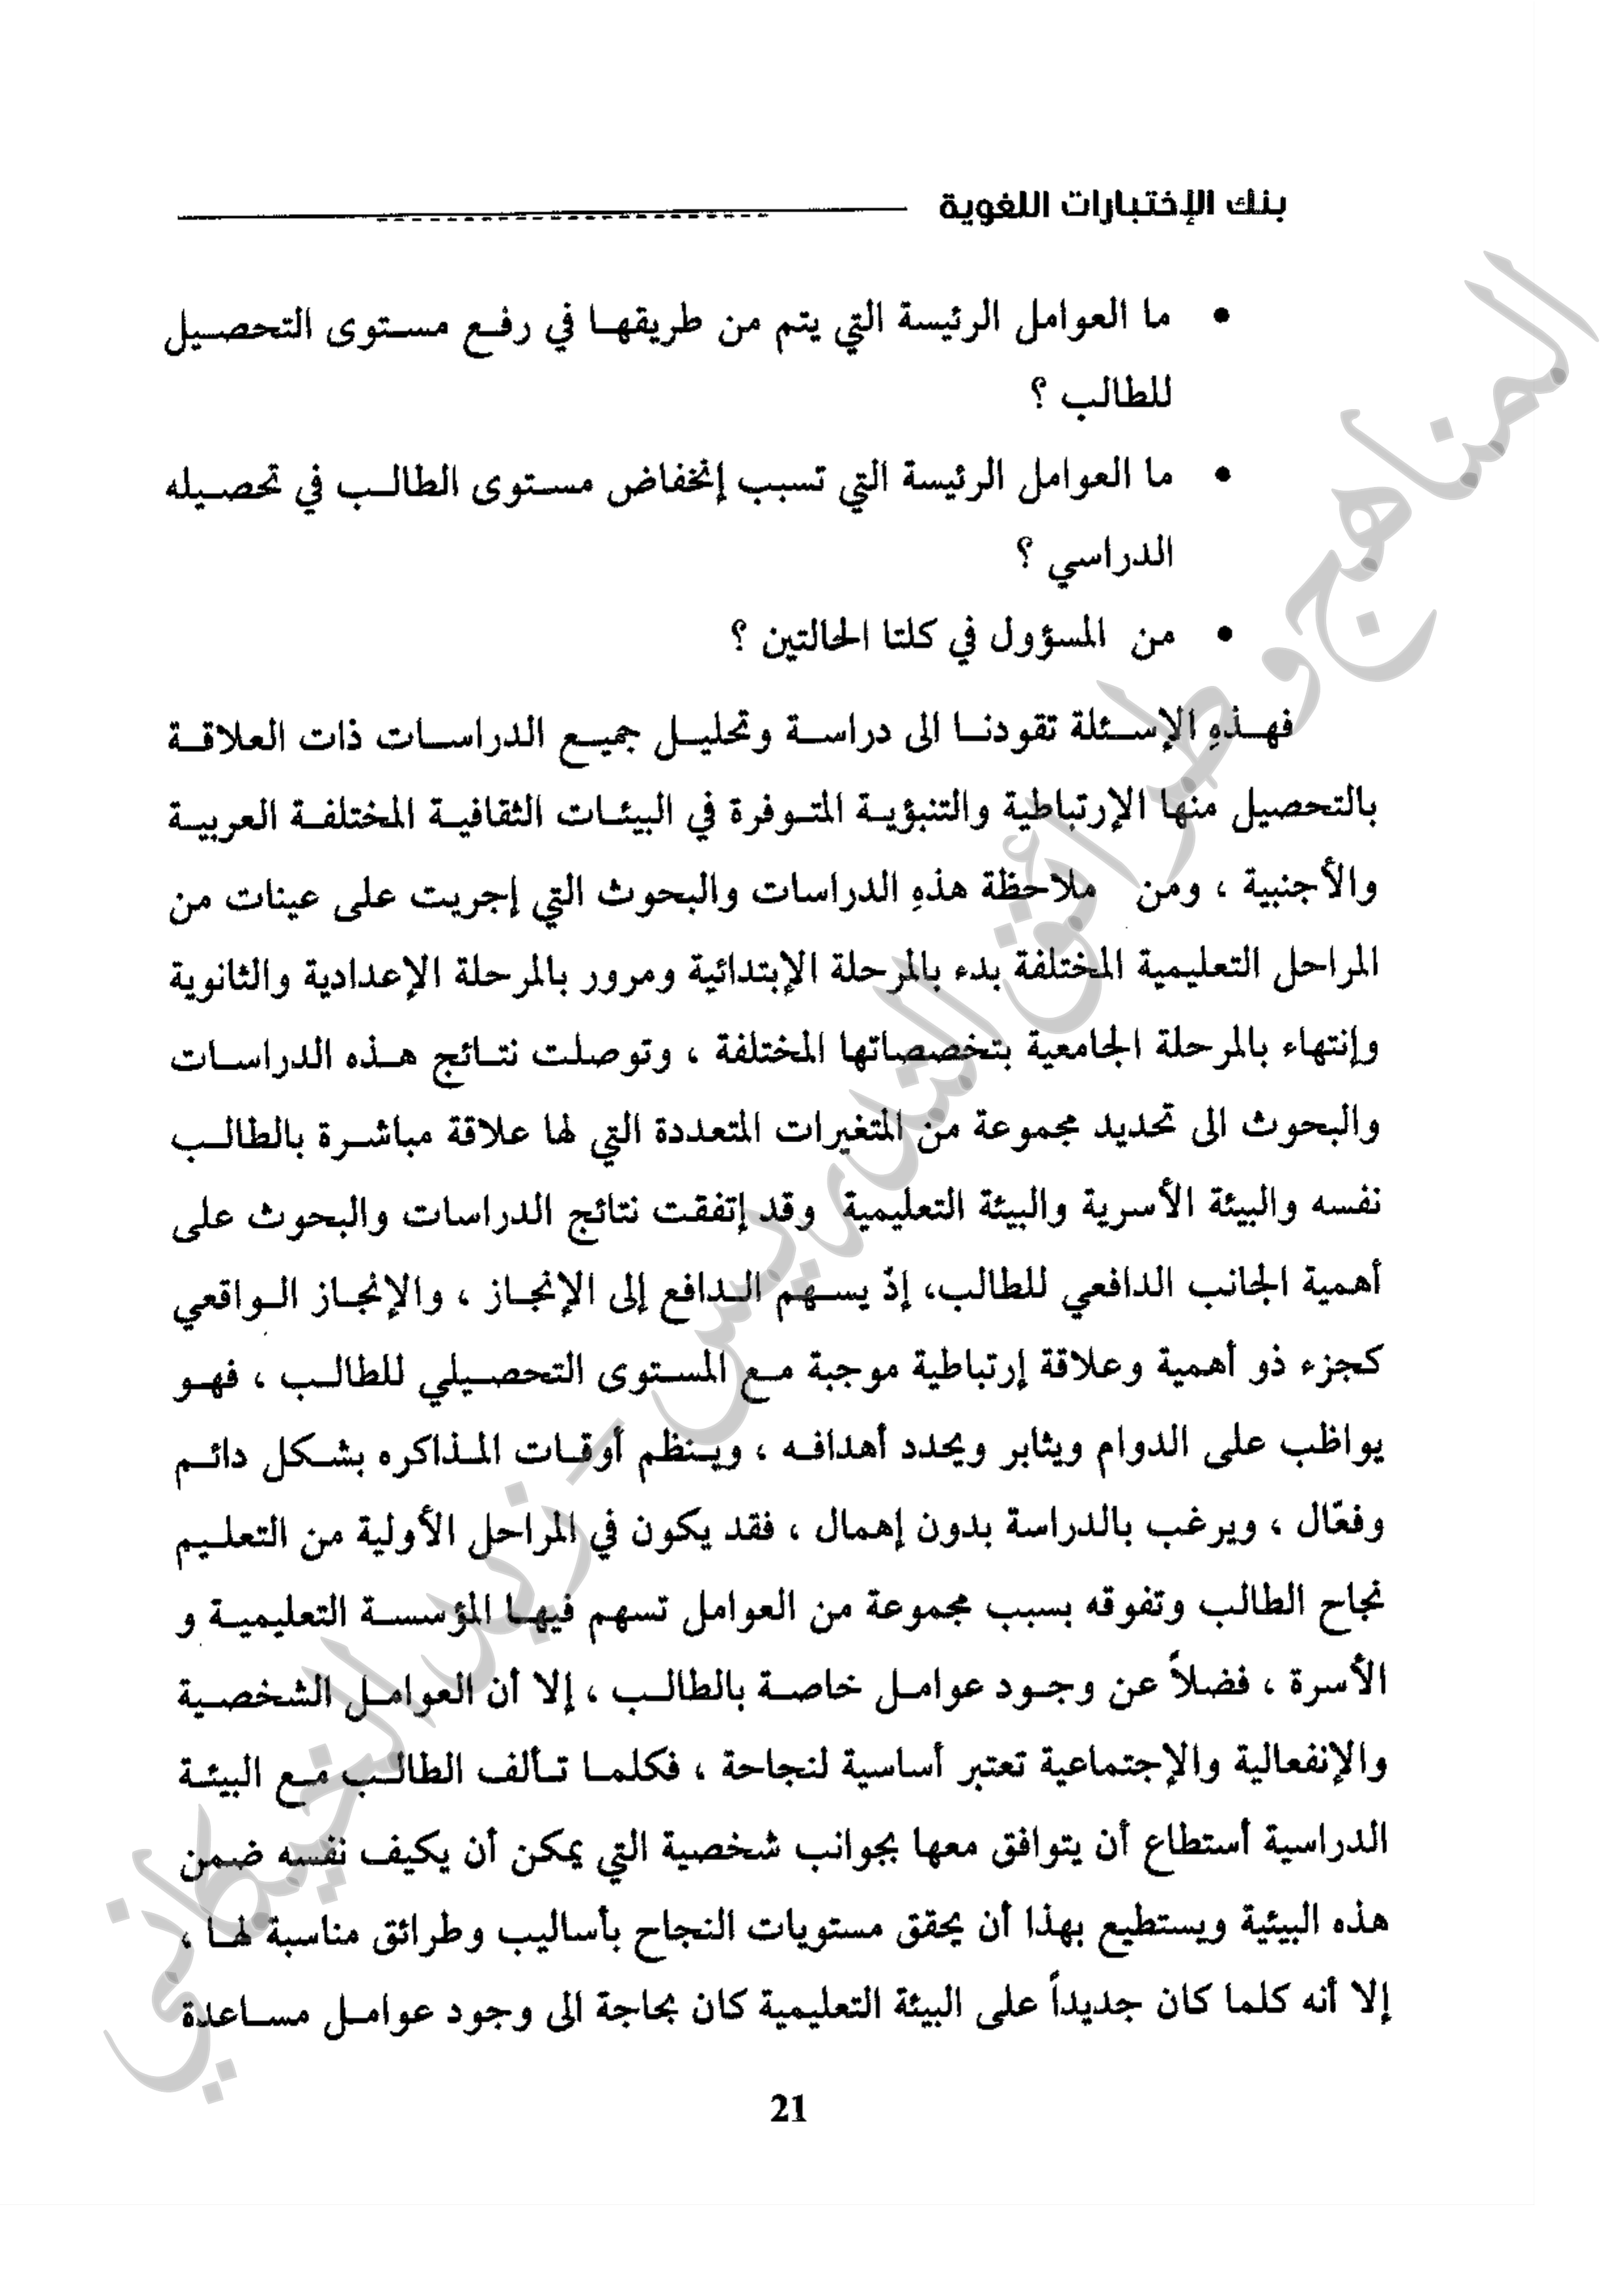 بنك الإختبارات اللغوية
• ما العوامل الرئيسة التي يتم من طريقها في رفع مستوى التحصيل
للطالب ؟
• ما العوامل الرئيسة التي تسبب إنخفاض مستوى الطالب في تحصيله
الدراسي ؟
• من المسؤول في كلتا الحالتين ؟
فهذهِ الإسئلة تقودنا الى دراسة وتحليل جميع الدراسات ذات العلاقة
بالتحصيل منها الإرتباطية والتنبؤية المتوفرة في البيئات الثقافية المختلفة العربية
والأجنبية ، ومن ملاحظة هذهِ الدراسات والبحوث التي إجريت على عينات من
المراحل التعليمية المختلفة بدء بالمرحلة الإبتدائية ومرور بالمرحلة الإعدادية والثانوية
وإنتهاء بالمرحلة الجامعية بتخصصاتها المختلفة ، وتوصلت نتائج هذه الدراسات
والبحوث الى تحديد مجموعة من المتغيرات المتعددة التي لها علاقة مباشرة بالطالب
نفسه والبيئة الأسرية والبيئة التعليمية وقد إتفقت نتائج الدراسات والبحوث على
أهمية الجانب الدافعي للطالب، إذّ يسهم الدافع إلى الإنجاز ، والإنجاز الواقعي
كجزء ذو أهمية وعلاقة إرتباطية موجبة مع المستوى التحصيلي للطالب ، فهو
يواظب على الدوام ويثابر ويحدد أهدافه ، وينظم أوقات المذاكره بشكل دائم
وفعّال ، ويرغب بالدراسة بدون إهمال ، فقد يكون في المراحل الأولية من التعليم
نجاح الطالب وتفوقه بسبب مجموعة من العوامل تسهم فيها المؤسسة التعليمية و
الأسرة ، فضلاً عن وجود عوامل خاصة بالطالب ، إلا أن العوامل الشخصية
والإنفعالية والإجتماعية تعتبر أساسية لنجاحة ، فكلما تألف الطالب مع البيئة
الدراسية أستطاع أن يتوافق معها بجوانب شخصية التي يمكن أن يكيف نفسه ضمن
هذه البيئية ويستطيع بهذا أن يحقق مستويات النجاح بأساليب وطرائق مناسبة لها ،
إلا أنه كلما كان جديداً على البيئة التعليمية كان بحاجة الى وجود عوامل مساعدة
21
المناهج وطرائق التدريس - زيد الخيكاني